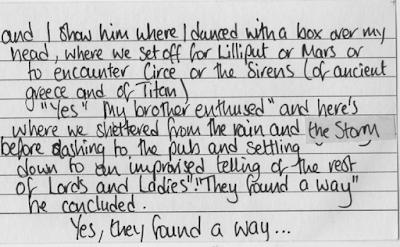 and I show him where I danced with a box over my
head, where we set off for Lilliput or Mars or
to encounter Circe or the Sirens (of ancient
greece and of Titan)
"Yes" My brother enthused" and here's
where we sheltered from the rain and the Storm
before dashing to the pub and settling
down to an improvised telling of the rest
of Lords and Ladies"."They found a way"
he concluded.
Yes, they found a way...